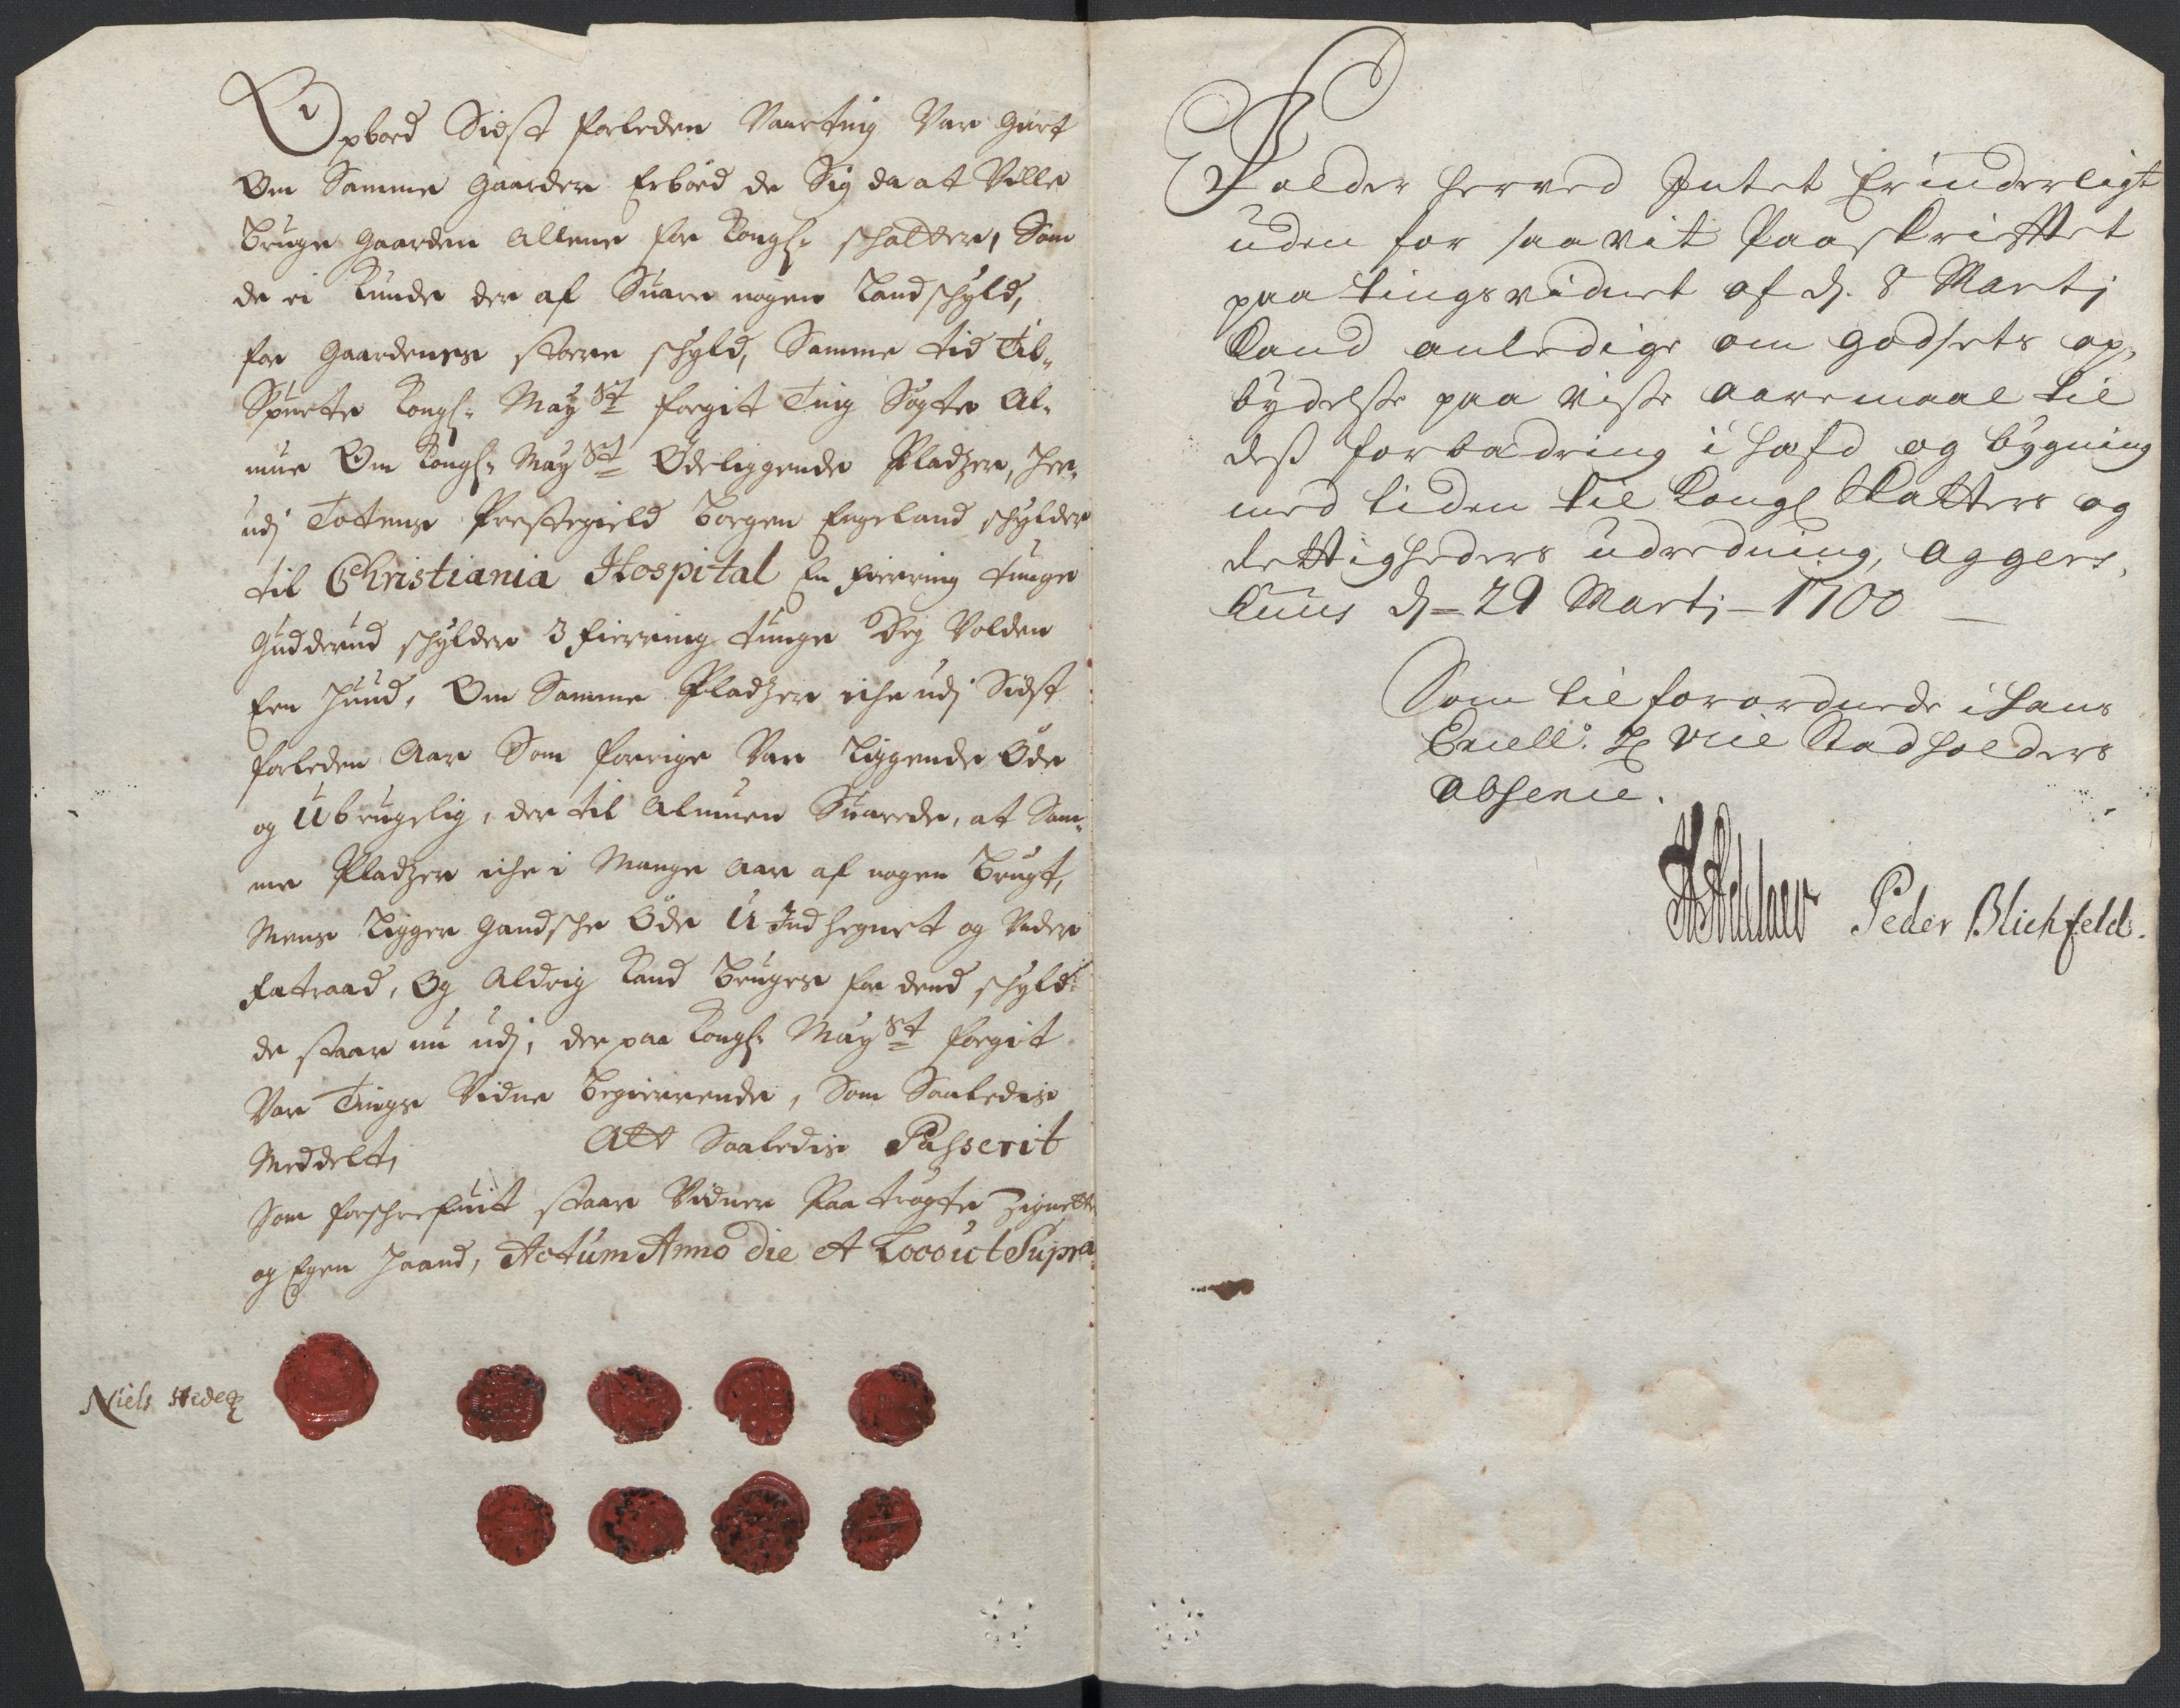 Opboed Sidst forleden Vaarting Var giort
Om Samme gaarder Erboed de Sig da at Ville
bruge gaarden Allene for Kongl: schatter, Som
de ei kunde der af Suare nogen Landschyld,
for gaardenes storre schyld, Samme tid Til-
Spurte Kongl: Maÿst: fogit Ting Søgte Al-
mue Om Kongl: Maÿst: Ødeliggende Pladzer, her-
udj Totens Prestegield Borgen Engeland schylder
til Christiania Hospital En fierring tunge
Gudderud schylder 3 fierring tunge Deg Volden
Een Hund, Om Samme Pladzer iche udj Sidst
forleden Aar Som forrige Var Liggende Øde
og Ubrugelig, der til Almuen Suarede, at Sam-
me Pladzer iche i Mange Aar af nogen brugt,
Mens Ligger gandsche Øde U-Indhegnet og Under
fatraad, Og Aldrig kand bruges for dend schyld
de staar nu udj, der paa Kongl: Maÿst: fogit
Var Tings Vidne begierende, Som Saaledis
Meddelt, Att Saaledis Passerit
Som forschrefuit staar Vidner Paa trøgte Zignetter
og Egen Haand, Actum Anno die et Loco ut Supra
Niels Hede
Falder herved Intet Erinderligt
uden for saavit Paaskrifftet
paa tingsvidnet af d. 8 Martj
kand anledige om godsets op-
bydelse paa visse aaremaal til
dess forbædring i hæfd og bygning
med tiden til Kongl Skatters og
Rettigheders udredning, Aggers-
huus d. 29 Martj 1700
Som tilforordnede i hans
Excell: Hr Vice Stadholders
absence.
Peder Blichfeld.